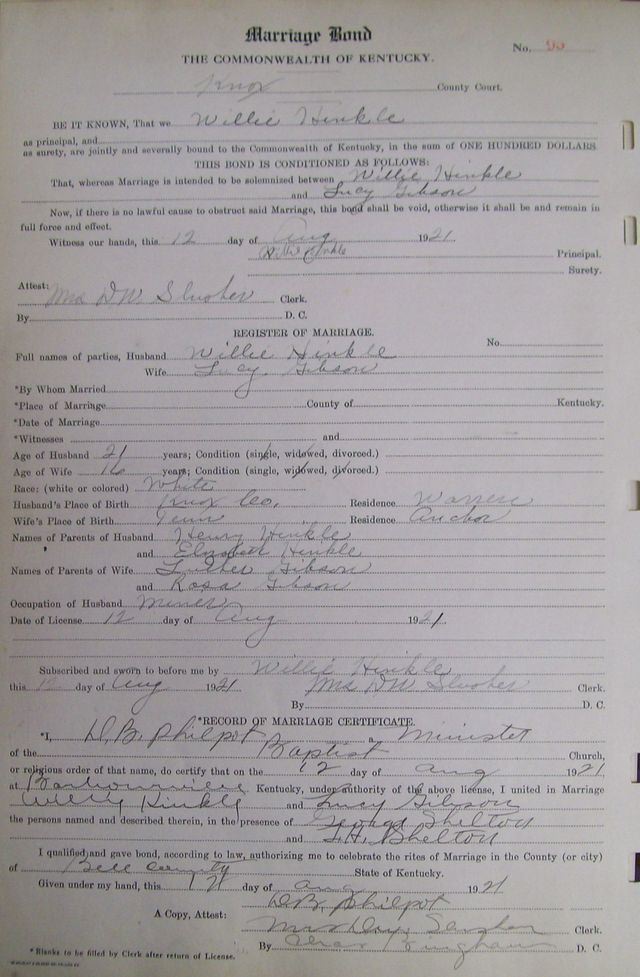 Marriage Bond
No. 93
THE COMMONWEALTH OF KENTUCKY.
Knox County Court.
BE IT KNOWN, That we Willie Hinkle
as principal, and
as surety, are jointly and severally bound to the Commonwealth of Kentucky, in the sum of ONE HUNDRED DOLLARS
THIS BOND IS CONDITIONED AS FOLLOWS:
That, whereas Marriage is intended to be solemnized between Willie Hinkle
and Lucy Gibson
Now, if there is no lawful cause to obstruct said Marriage, this bond shall be void, otherwise it shall be and remain in
full force and effect.
Witness our hands, this 12 day of Aug 1921
Willie Hinkle Principal.
Surety.
Attest:
Mrs D.W. Slusher Clerk.
By D. C.
REGISTER OF MARRIAGE.
Full names of parties, Husband Willie Hinkle No.
Wife Lucy Gibson
*By Whom Married
*Place of Marriage County of Kentucky.
*Date of Marriage
*Witnesses and
Age of Husband 21 years; Condition (single, widowed, divorced.)
Age of Wife 16 years; Condition (single, widowed, divorced.)
Race: (white or colored) White
Husband's Place of Birth Knox Co. Residence Warren
Wife's Place of Birth Tenn Residence Anchor
Names of Parents of Husband Henry Hinkle
and Elizabeth Hinkle
Names of Parents of Wife Luther Gibson
and Rosa Gibson
Occupation of Husband Miner
Date of License 12 day of Aug 1921
Subscribed and sworn to before me by Willie Hinkle
this 12 day of Aug 1921 Mrs D.W. Slusher Clerk.
By D. C.
*RECORD OF MARRIAGE CERTIFICATE.
*I, D.B. Philpot a Minister
of the Baptist Church,
or religious order of that name, do certify that on the 12 day of Aug 1921
at Barbourville Kentucky, under authority of the above license, I united in Marriage
Willie Hinkle and Lucy Gibson
the persons named and described therein, in the presence of George Shelton
and Shelton
I qualified and gave bond, according to law, authorizing me to celebrate the rites of Marriage in the County (or city)
of Bell County State of Kentucky.
Given under my hand, this 12 day of Aug 1921
D.B. Philpot
A Copy, Attest: Slusher Clerk.
By Bingham D. C.
*Blanks to be filled by Clerk after return of License.